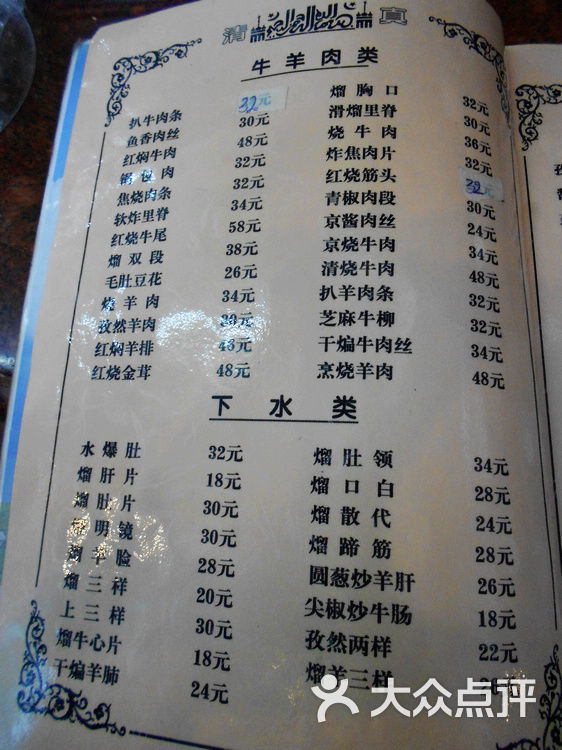 清真
牛羊肉类
扒牛肉条 32元 熘胸口 32元
鱼香肉丝 30元 滑熘里脊 30元
红焖牛肉 48元 烧牛肉 36元
锅包肉 32元 炸焦肉片 32元
焦烧肉条 32元 红烧筋头 32元
软炸里脊 34元 青椒肉段 30元
红烧牛尾 58元 京酱肉丝 24元
熘双段 38元 京烧牛肉 34元
毛肚豆花 26元 清烧牛肉 48元
烧羊肉 34元 扒羊肉条 32元
孜然羊肉 元 芝麻牛柳 32元
红焖羊排 48元 干煸牛肉丝 34元
红烧金茸 48元 烹烧羊肉 48元
下水类
水爆肚 32元 熘肚领 34元
熘肝片 18元 熘口白 28元
熘肚片 30元 熘散代 24元
明镜 30元 熘蹄筋 28元
羊脸 28元 圆葱炒羊肝 26元
熘三样 20元 尖椒炒牛肠 18元
上三样 30元 孜然两样 22元
熘牛心片 18元 熘羊三样 元
干煸羊肺 24元
大众点评